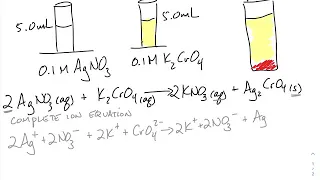 5.0mL 5.0mL
0.1M AgNO₃ 0.1M K₂CrO₄
2AgNO₃(aq) + K₂CrO₄(aq) → 2KNO₃(aq) + Ag₂CrO₄(s)
COMPLETE ION EQUATION
2Ag⁺ + 2NO₃⁻ + 2K⁺ + CrO₄²⁻ → 2K⁺ + 2NO₃⁻ + Ag